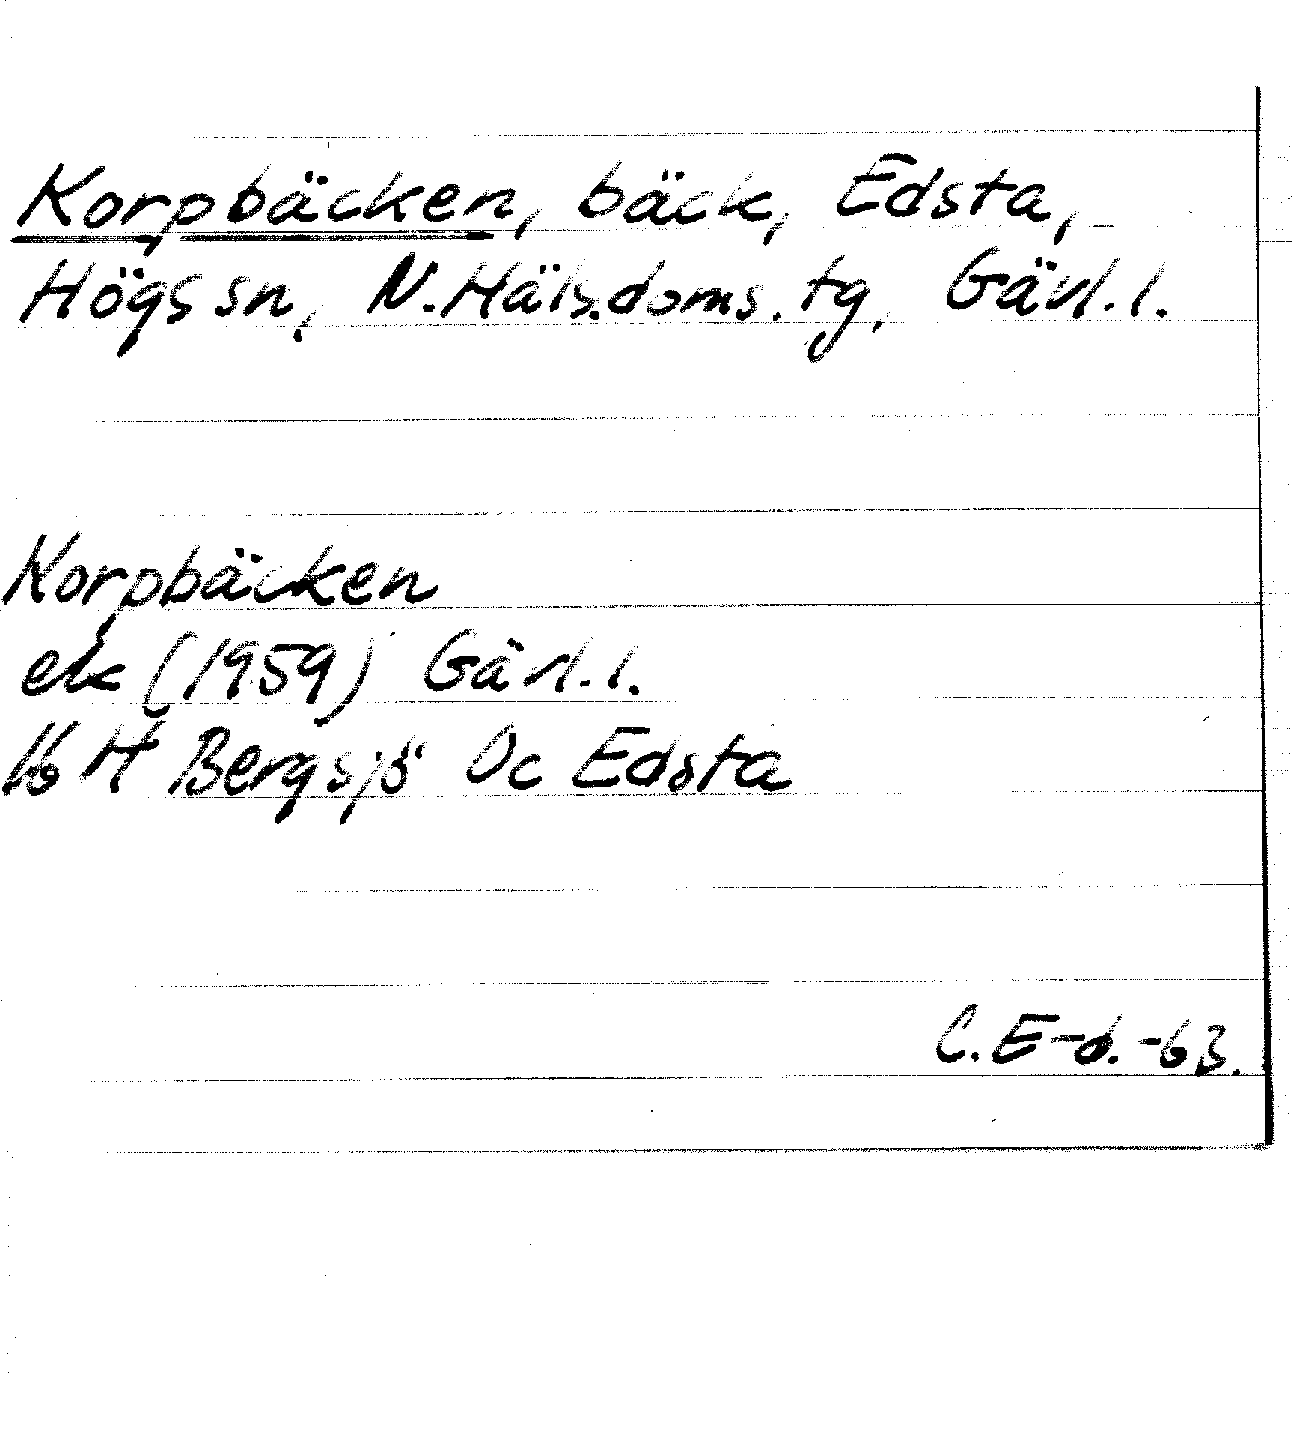 Korpbäcken, bäck, Edsta,
Högs sn, N.Häls.doms.tg, Gävl.l.
Korpbäcken
ek (1959) Gävl.l.
16 H Bergsjö 0c Edsta
C.E-d.-63.